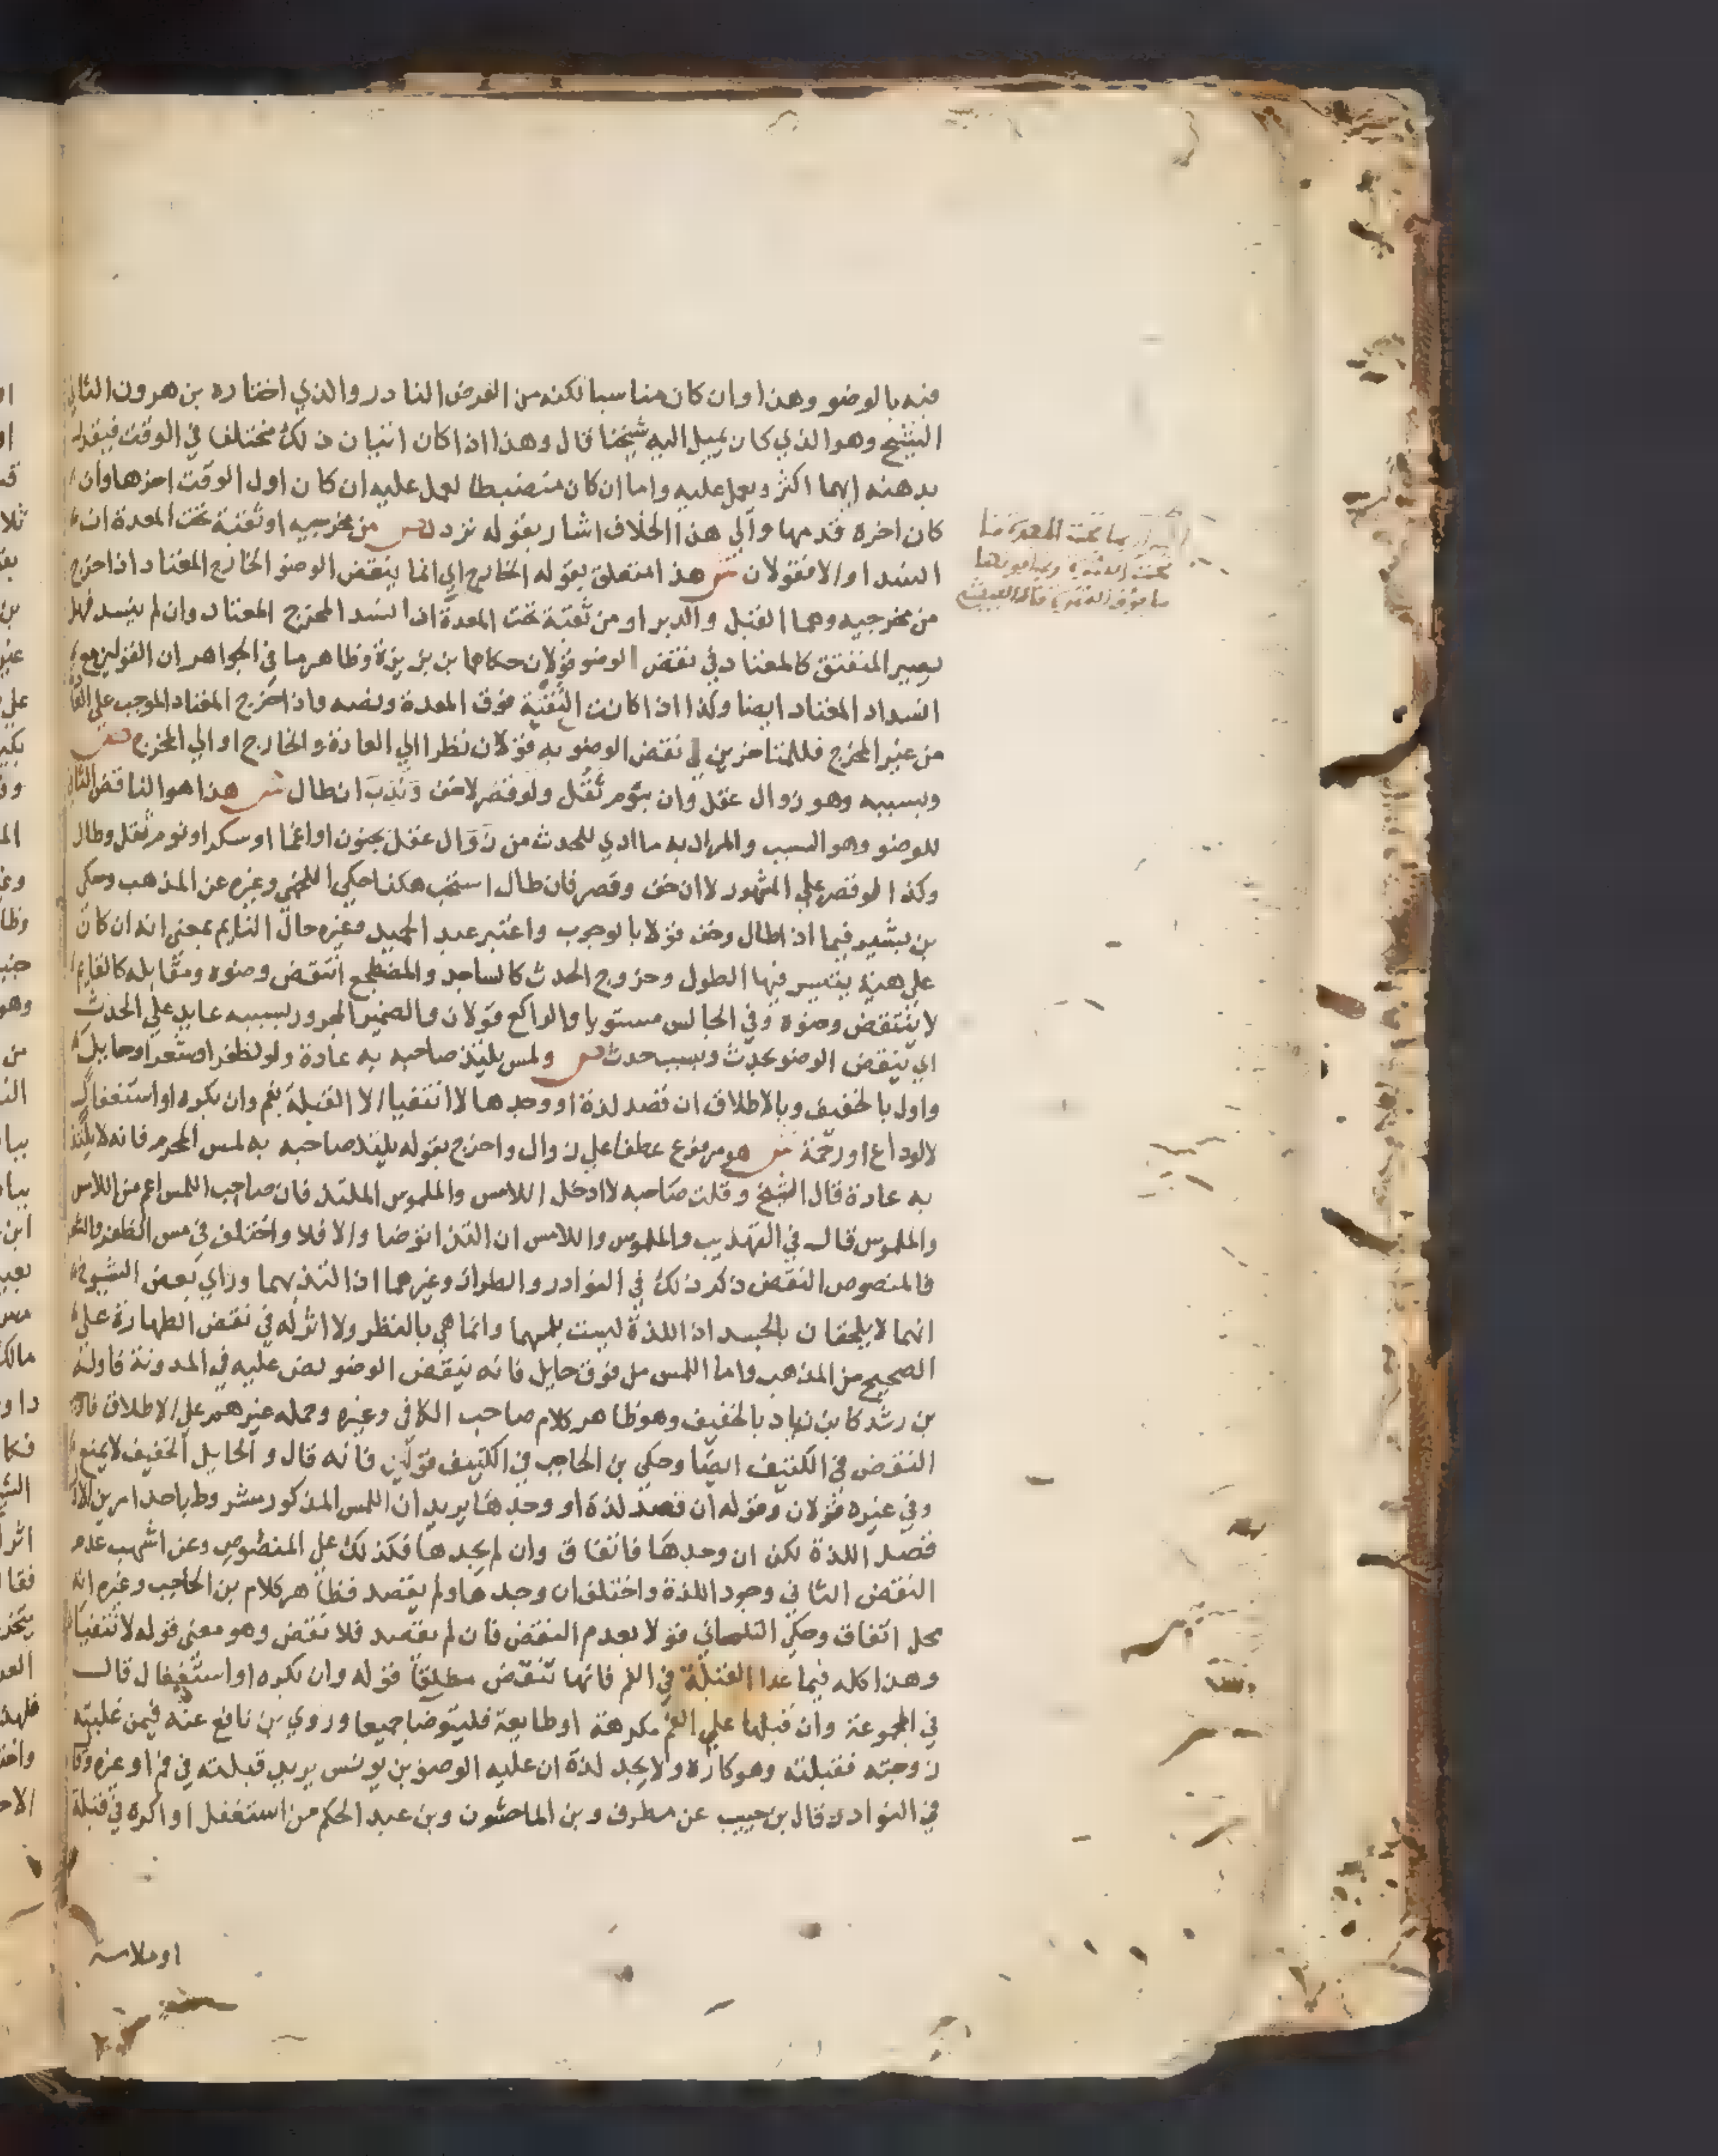 فيه بالوضو وهذا وان كان مناسبا لكنه من الفرض النادر والذي اختاره بن هرون الثاني
الشيخ وهو الذي كان يميل اليه شيخنا قال وهذا اذا كان اتيان ذلك مختلفا في الوقت فيقدر
بدهنه ايهما اكثر ويعمل عليه واما ان كان منضبطا لعمل عليه ان كان اول الوقت اخرها وان
كان اخره قدمها والي هذا الخلاف اشار بقوله تردد ص من مخرجيه او ثقبة تحت المعدة ان
انسدا والا فقولان ش هذا متعلق بقوله الخارج اي انما ينقض الوضو الخارج المعتاد اذا خرج
من مخرجيه وهما القبل والدبر او من ثقبة تحت المعدة اذا انسد المخرج المعتاد وان لم ينسد فهل
يصير المنفتق كالمعتاد في نقض الوضو قولان حكاهما بن بزيزة وظاهر ما في الجواهر ان القولين مع
انسداد المعتاد ايضا وكذا اذا كانت الثقبة فوق المعدة ونصه واذا خرج المعتاد الموجب علي العادة
من غير المخرج فللمتاخرين في نقض الوضو به قولان نظرا الي العادة والخارج او الي المخرج ص
وبسببه وهو زوال عقل وان بنوم ثقل ولو قصر لا خف وندب ان طال ش هذا هو الناقض الثاني
للوضو وهو السبب والمراد به ما ادي للحدث من زوال عقل بجنون او اغما او سكر او نوم ثقل وطال
وكذا لو قصر علي المشهور لا ان خف وقصر فان طال استحب هكذا حكي اللخمي وغيره عن المذهب وحكي
بن بشير فيما اذا طال وخف قولا بالوجوب واعتبر عبد الحميد وغيره حال النايم بمعني انه ان كان
علي هيئة يتيسر فيها الطول وخروج الحدث كالساجد والمضطجع انتقض وضوه ومقابله كالقايم
لا ينتقض وضوه وفي الجالس مستويا والراكع قولان والضمير المجرور بسببه عايد علي الحدث
اي ينقض الوضو بحدث وبسبب حدث ص ولمس يلتذ صاحبه به عادة ولو لظفر او شعر او حايل
واول بالخفيف وبالاطلاق ان قصد لذة او وجدها لا انتفيا الا القبلة بفم وان بكره او استغفال
لا لوداع او رحمة ش هو مرفوع عطفا علي زوال واحترز بقوله يلتذ صاحبه به لمس المحرم فانه لا يلتذ
به عادة قال الشيخ وقلت صاحبه لادخل اللامس والملموس الملتذ فان صاحب اللمس اعم من اللامس
والملموس قال في التهذيب والملموس واللامس ان التذا توضا والا فلا واختلف في مس الظفر والشعر
فالمنصوص النقض ذكر ذلك في النوادر والطراز وغيرهما اذا التذ بهما وراي بعض الشيوخ
انهما لا يلحقان بالجسد اذ اللذة ليست بلمسهما وانما هي بالنظر ولا اثر له في نقض الطهارة علي
الصحيح من المذهب واما اللمس من فوق حايل فانه ينقض الوضو نص عليه في المدونة فاوله
بن رشد كابن زياد بالخفيف وهو ظاهر كلام صاحب الكافي وغيره وحمله غيرهم علي الاطلاق فاثبت
النقض في الكثيف ايضا وحكي بن الحاجب في الكثيف قولين فانه قال والحايل الخفيف لا يمنع
وفي غيره قولان وقوله ان قصد لذة او وجدها يريد ان اللمس المذكور مشروط باحد امرين الاول
قصد اللذة لكن ان وجدها فاتفاق وان لم يجدها فكذلك علي المنصوص وعن اشهب عدم
النقض الثاني وجود اللذة واختلف ان وجدها ولم يقصد فظاهر كلام بن الحاجب وغيره انه
محل اتفاق وحكي التلمساني قولا بعدم النقض فان لم يقصد فلا نقض وهو معني قوله لا انتفيا
وهذا كله فيما عدا القبلة في الفم فانها تنقض مطلقا قوله وان بكره او استغفال قال
في المجموعة وان قبلها علي الفم مكرهة او طايعة فليتوضا جميعا وروي بن نافع عنه فيمن غلبته
زوجته فقبلته وهو كاره ولا يجد لذة ان عليه الوضو بن يونس يريد قبلته في فم او غيره وقا
في النوادر قال بن حبيب عن مطرف وبن الماجشون وبن عبد الحكم من استغفل او اكره في قبلة
او ملامسة